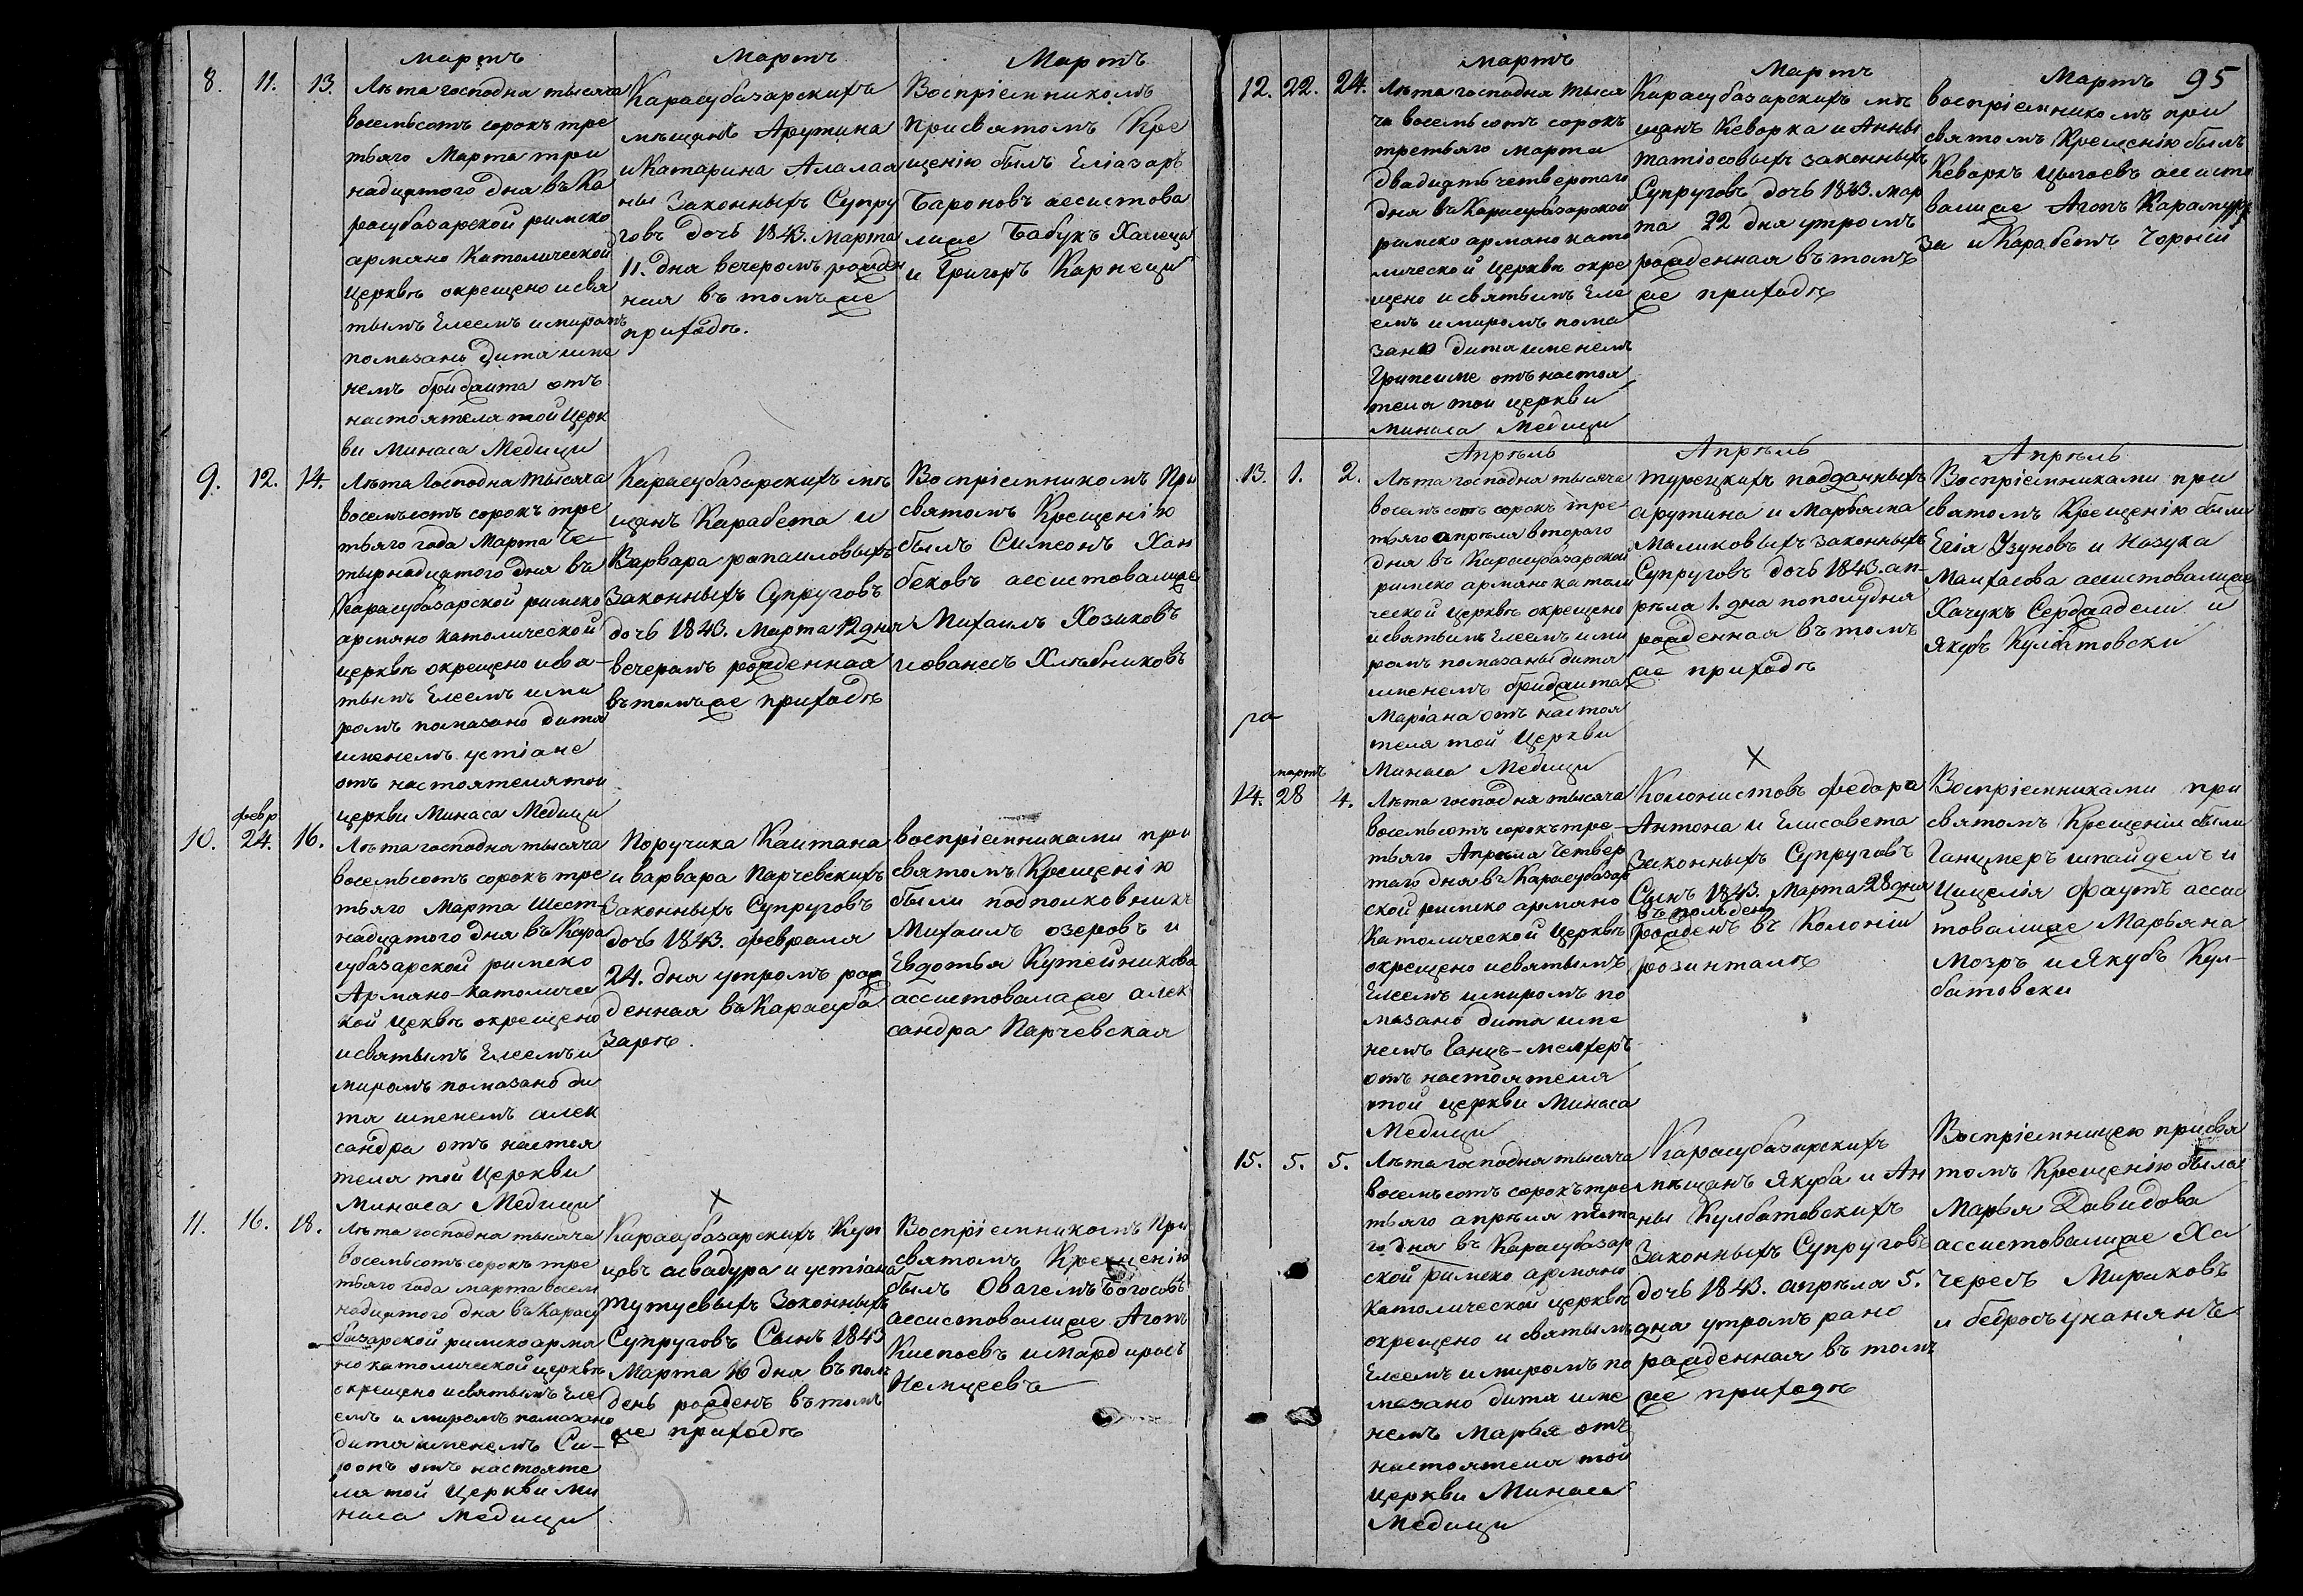 мартъ
8. 11. 13.
Лѣта господня тысяча
восемьсотъ сорокъ тре
тьяго Марта три
надцатого дня въ Ка
расубазарской римско
армяно Католической
Церквѣ окрещено и свя
тымъ Елеемъ и миромъ
помазанъ дитя име
немъ бриджита отъ
настоятеля той Церк
ви Минаса Медици
Мартъ
Карасубазарскихъ
мѣщанъ Арутина
и Катарина Алалая
ны Законныхъ Супру
говъ дочь 1843. Марта
11. дня вечеромъ рожден
ная въ томъ же
приходѣ.
Мартъ
Воспріемникомъ
при святомъ Кре
щенію былъ Еліазаръ
Бароновъ ассистова
лисе Бабукъ Халеци
и Григоръ Карнеци
9. 12. 14.
Лѣта Господня тысяча
восемьсотъ сорокъ тре
тьяго года Марта Че-
тырнадцатого дня въ
Карасубазарской римско
армяно католической
церквѣ окрещено и свя-
тымъ Елеемъ и ми
ромъ помазано дитя
именемъ устіане
отъ настоятеля той
церкви Минаса Медици
Карасубазарскихъ мѣ
щанъ Карабета и
Варвара рапаиловыхъ
Законныхъ Супруговъ
дочь 1843. Марта 12 дня
вечеромъ рожденная
въ томъ же приходѣ
Воспріемникомъ При
святомъ Крещенію
былъ Симеонъ Хан
бековъ ассистовалисе
Михаилъ Хозиковъ
иованесъ Хлѣбниковъ
февр
10. 24. 16.
Лѣта господня тысяча
восемьсотъ сорокъ тре
тьяго Марта Шест-
надцатого дня въ Кара
субазарской римско
Армяно-католичес
кой Цеквѣ окрещено
и святымъ Елеемъ и
миромъ помазано ди
тя именемъ алек
сандра отъ настоя
теля той Церкви
Минаса Медици
Поручика Каитана
и варвара Парчевскихъ
Законныхъ Супруговъ
дочь 1843. февраля
24. дня утромъ рож
денная въ Карасуба
зарѣ.
воспріемниками при
святомъ Крещенію
были подполковникъ
Михаилъ озеровъ и
Евдотья Кутейникова
ассистовалаже алек
сандра Парчевская
11. 16. 18.
Лѣта господня тысяча
восемьсотъ сорокъ тре
тьяго года марта восем
надцатого дня въ Карасу
базарской римско армя
но католической церквѣ
окрещено и святымъ Еле
емъ и миромъ помазано
дитя именемъ Си-
ропъ отъ настояте
ля той Церкви Ми
наса Медици
х
Карасубазарскихъ Куп
цовъ асвадура и устіана
тутуевыхъ Законныхъ
Супруговъ Сынъ 1843
Марта 16 дня въ пол
день рожденъ въ томъ
же приходѣ
Воспріемникомъ При
святомъ Крещенію
былъ Овагемъ Богосовъ
ассистовалисе Агопъ
Киспоевъ и Мардиросъ
Немцеевъ
95
мартъ
12. 22. 24.
Лѣта господня тыся
ча восемьсотъ сорокъ
третьяго марта
двадцать четвертаго
дня въ Карасубазарской
римско армяно като
лической Церквѣ окре
щено и святымъ Еле
емъ и миромъ пома
зано дитя именемъ
Грипсиме отъ настоя
теля той церкви
Минаса Медици
Мартъ
Карасубазарскихъ мѣ
щанъ Кеворка и Анны
татіосовыхъ законныхъ
Супруговъ дочь 1843. мар
та 22 дня утромъ
рожденная въ томъ
же приходѣ
Мартъ
воспріемникомъ при
святомъ Крещенію былъ
Кеворкъ Цыгоевъ ассисто
валисе Агопъ Карамур
за и Карабетъ Чорній
Апрѣль
13. 1. 2.
Лѣта господня тысяча
восемъсотъ сорокъ тре
тьяго апрѣля второго
дня въ Карасубазарской
римско армяно католи
ческой Церквѣ окрещено
и святымъ Елеемъ и ми
ромъ помазаны дитя
именемъ бриджита
Маріана отъ настоя
теля той Церкви
Минаса Медици
Апрѣль
турецкихъ подданныхъ
арутина и Марьяма
Маликовыхъ законныхъ
Супруговъ дочь 1843. ап-
рѣля 1. дня пополудня
рожденная въ томъ
же приходѣ
Апрѣль
Воспріемниками при
святомъ Крещенію были
Егія Узуновъ и Назука
Манхасова ассистовалисе
Хачукъ Сердаадели и
Якубъ Кулбатовски
ра
мартъ
14. 28 4.
Лѣта господня тысяча
восемьсотъ сорокъ тре-
тьяго Апрѣля Четвер
таго дня въ Карасубазар
ской римско армяно
Католической Церквѣ
окрещено и святымъ
Елеемъ и миромъ по
мазано дитя име
немъ Ганцъ-мелхеръ
отъ настоятеля
той церкви Минаса
Медици
х
Колонистовъ федора
Антона и Елисавета
Законныхъ Супруговъ
Сынъ 1843. Марта 28 дня
въ полдень
рожденъ въ Колоніи
розинталѣ
Воспріемниками при
святомъ Крещеніи были
Ганцмеръ шпайделъ и
Цицелія фаутъ ассис
товалисе Марьяна
Мозръ и Якубъ Кул-
батовски
15. 5. 5.
Лѣта господня тысяча
восемьсотъ сорокъ тре
тьяго апрѣля пята
го дня въ Карасубазар
ской римско армяно
католической церквѣ
окрещено и святымъ
Елеемъ и миромъ по
мазано дитя име
немъ Марья отъ
настоятеля той
церкви Минаса
Медици
Карасубазарскихъ
мѣщанъ Якуба и Ан
ны Кулбатовскихъ
Законныхъ Супруговъ
дочь 1843. апрѣля 5.
дня утромъ рано
рожденная въ томъ
же приходѣ
Воспріемницею при свя
томъ Крещенію была
Марья Давидова
ассистовалисе Ха
чересъ Мириковъ
и бедросъ унанянъ